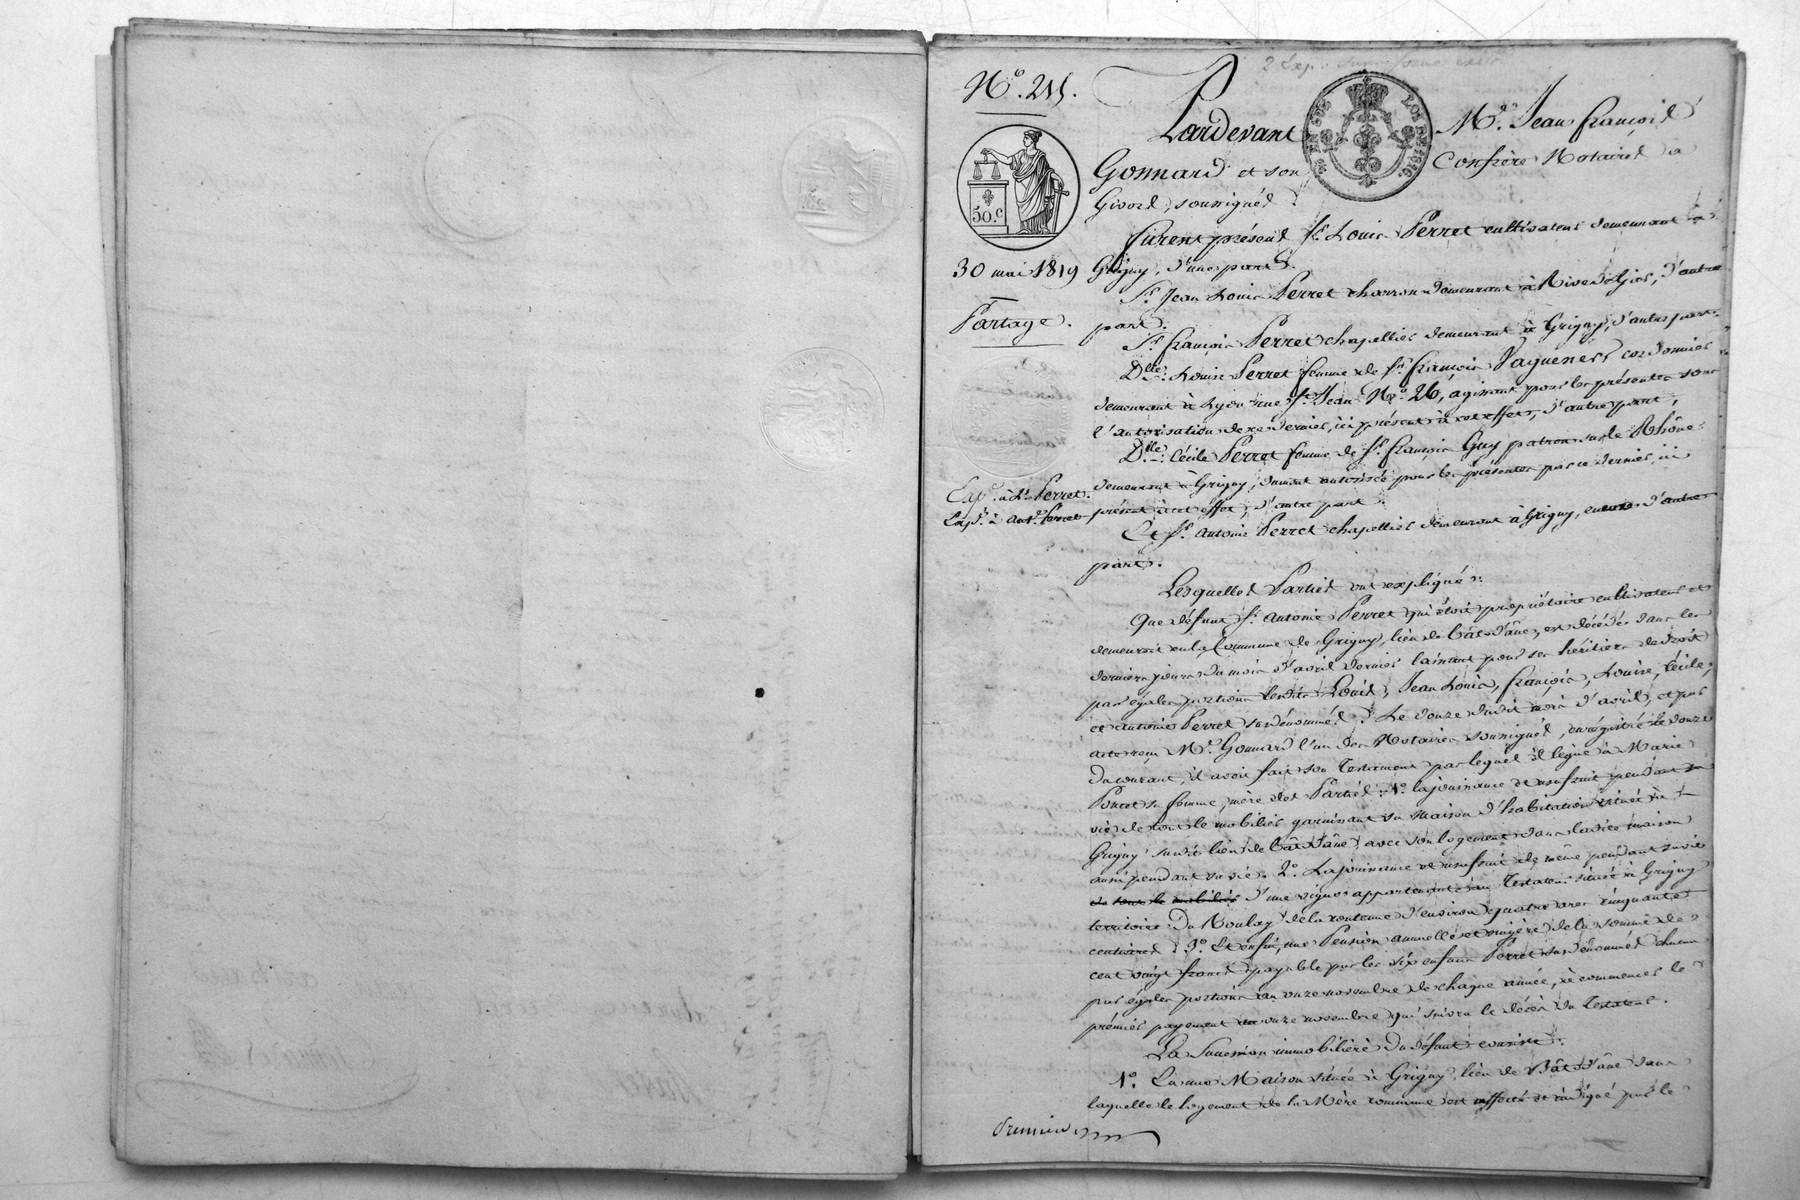 N.º 215.
Pardevant Mᵉ. Jean françois
Gonnard et son Confrère Notaires à
Givors, soussignés.
50.c
30 mai 1819
Partage.
furent présens Sʳ. Louis Perret cultivateur demeurant à
Grigny, d'une part.
Sʳ. Jean Louis Perret charron demeurant à Rive de Gier, d'autre
part.
Sʳ. françois Perret chapellier demeurant à Grigny, d'autre part.
Dˡˡᵉ. Louise Perret femme de Sʳ. françois cordonnier
demeurant à Lyon rue Sᵗ. Jean Nº. 26, agissant pour les présentes sous
l'autorisation de ce dernier, ici présent à cet effet, d'autre part,
Dˡˡᵉ. Cécile Perret femme de Sʳ. françois Guy patron sur le Rhône
demeurant à Grigny, dument autorisée pour les présentes par ce dernier, ici
présent à cet effet, d'autre part.
Exp. à Perret.
Exp. à Ant. Perret
Et Sʳ. Antoine Perret chapellier demeurant à Grigny, encore d'autre
part.
Lesquelles Parties ont expliqué:
Que défunt Sʳ. Antoine Perret qui étoit propriétaire cultivateur et
demeurait en la Commune de Grigny, lieu de Bât-d'âne, est décédé dans les
derniers jours du mois d'avril dernier laissant pour ses héritiers de droit
par égales portions lesdits Louis, Jean Louis, françois, Louise, Cécile,
et Antoine Perret susdénommés. Le douze dudit mois d'avril, et par
acte reçu Mᵉ. Gonnard l'un des Notaires soussignés, enregistré le douze
du courant, il avoit fait son Testament par lequel il légue à Marie
Poncet sa femme, mère des Parties: 1º. la jouissance et usufruit pendant sa
vie de tout le mobilier garnissant sa maison d'habitation située à
Grigny susdit lieu de Bât-d'âne, avec son logement dans ladite maison
aussi pendant sa vie. 2º. La jouissance et usufruit de même pendant sa vie
de tout le mobilier d'une vigne appartenante au Testateur située à Grigny
territoire du Boulay, de la contenue d'environ quatre ares cinquante
centiares. 3º. Et enfin, une Pension annuelle et viagère de la somme de
cent vingt francs payable par les six enfans Perret susdénommés chacun
par égales portions au onze novembre de chaque année, à commencer le
prémier payement au onze novembre qui suivra le décès du Testateur.
La Succession immobilière du défunt consiste:
1º. En une Maison située à Grigny, lieu de Bât-d'âne dans
laquelle le logement de la Mère commune est affecté et indiqué par le